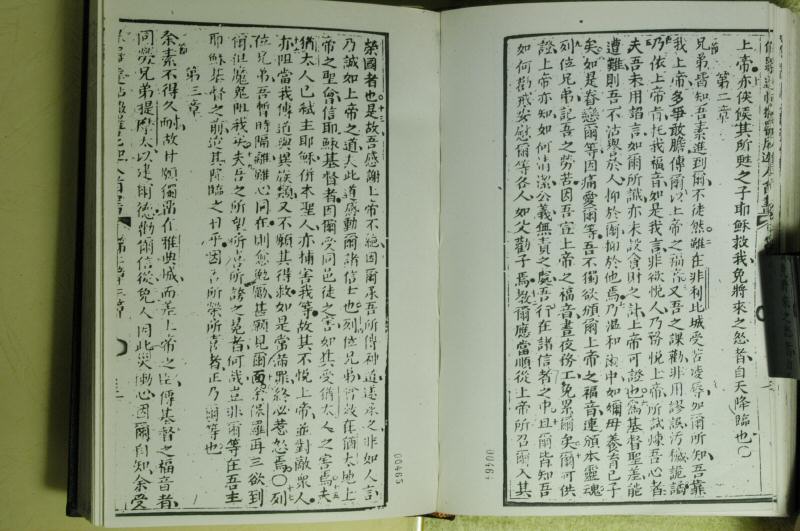 上帝亦俟候其所甦之子耶穌救我免將來之怒者自天降臨也〇
第二章
兄弟皆知吾素進到爾不徒然雖在非利比城受苦凌辱如爾所知吾靠
我上帝多爭敢膽傳爾以上帝之福音又吾之課勸非用謬誤污穢詭譎
乃依上帝肯托我福音如是我言非欲悅人乃務悅上帝所試煉吾心者
夫吾未用諂言如爾所識亦未設貪財之計上帝可證也為基督聖差能
遭難則吾不沽譽於人抑於爾抑於他焉乃溫和爾中如嬭母養育己子
矣如是眷戀爾等因痛愛爾等吾不獨欲頒爾上帝之福音連頒本靈魂
列位兄弟記吾之勞苦因吾宣上帝之福音晝夜務工免累爾矣爾可供
證上帝亦知如何清潔公義無責之處吾行在諸信者之中且爾皆知吾
如何勸戒安慰爾等各人如父勸子焉爾應當順從上帝所召爾入其
榮國者也是故吾感謝上帝不絕因爾承吾所傳神道遂承之非如人言
乃誠如上帝之道夫此道感動爾諸信士也列位兄弟在猶太地上
帝之聖會信耶穌基督者因爾受同邑徒之害如其受猶太人之害焉夫
猶太人已弒主耶穌併本聖人亦捕害我等故其不悅上帝並對敵眾人
亦阻當我傳道與異族類又不願其得救如是常滿罪終必惹怒焉〇列
位兄弟吾暫時隔離爾心同在則愈勉勵甚願見爾面余保羅再三欲到
爾但魔鬼阻我矣夫吾之所望所喜所誇之冕者何哉豈非爾等在吾主
耶穌基督之前迨其降臨之日乎因吾所榮所喜者正乃爾等也
第三章
余素不得久耐故甘願獨留在雅典城而差上帝之臣傳基督之福音者
同勞兄弟提摩太以建明德勸爾信從免人因此災慟心因爾自知余受
00465
00464